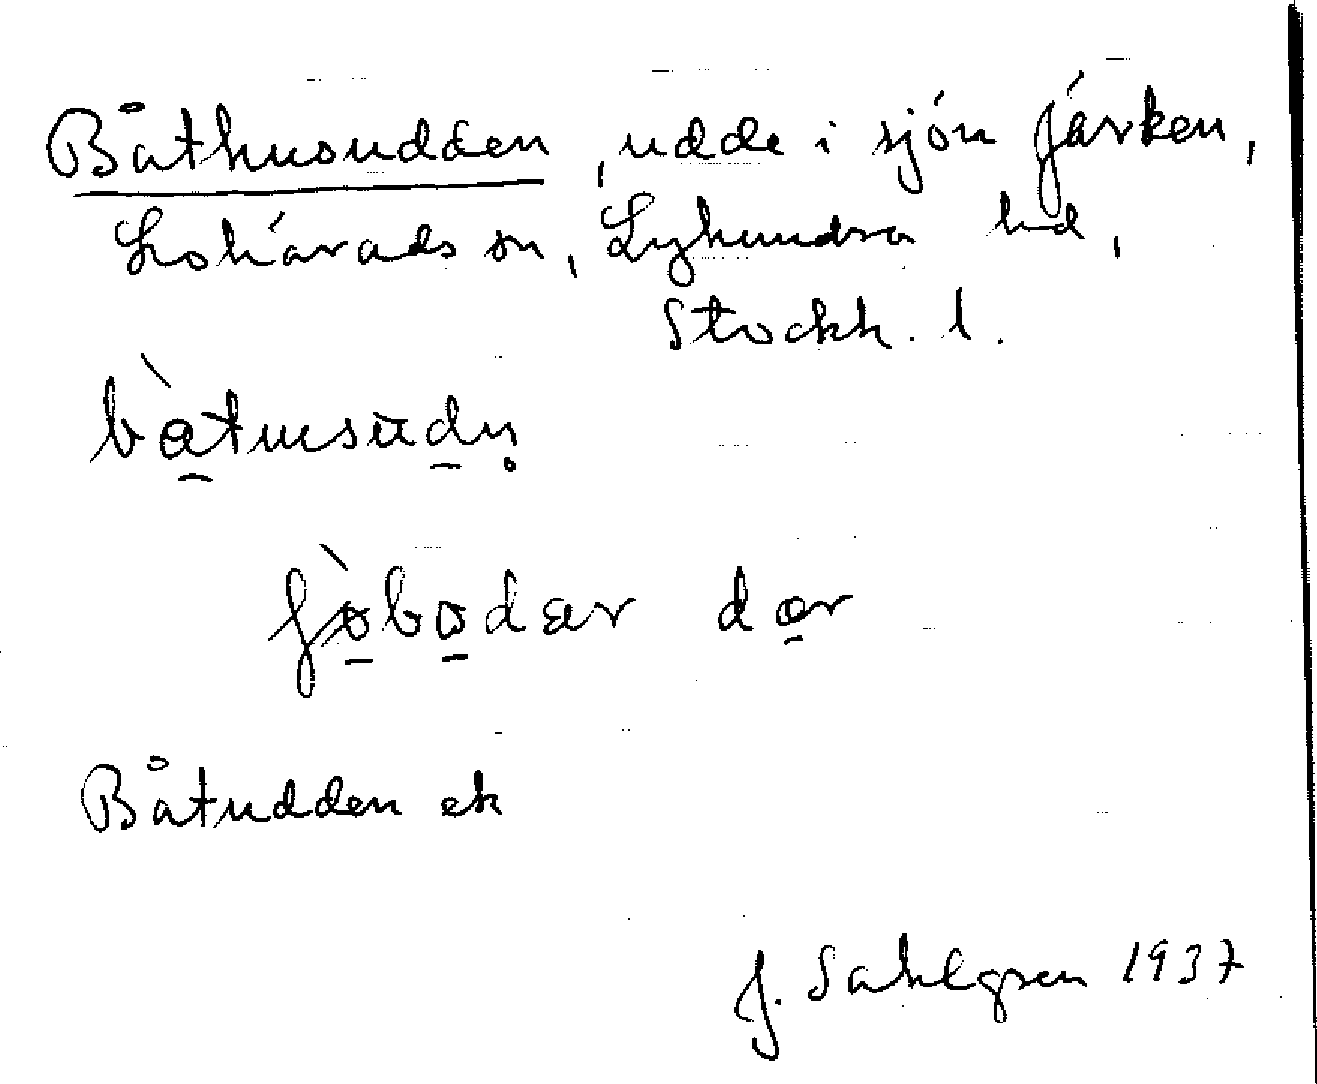 Båthusudden, udde i sjön Järken,
Lohärads sn, Lyhundra hd,
Stockh. l.
bàtusudn̥
fʃø̀bodær dær
Båtudden ek
J. Sahlgren 1937